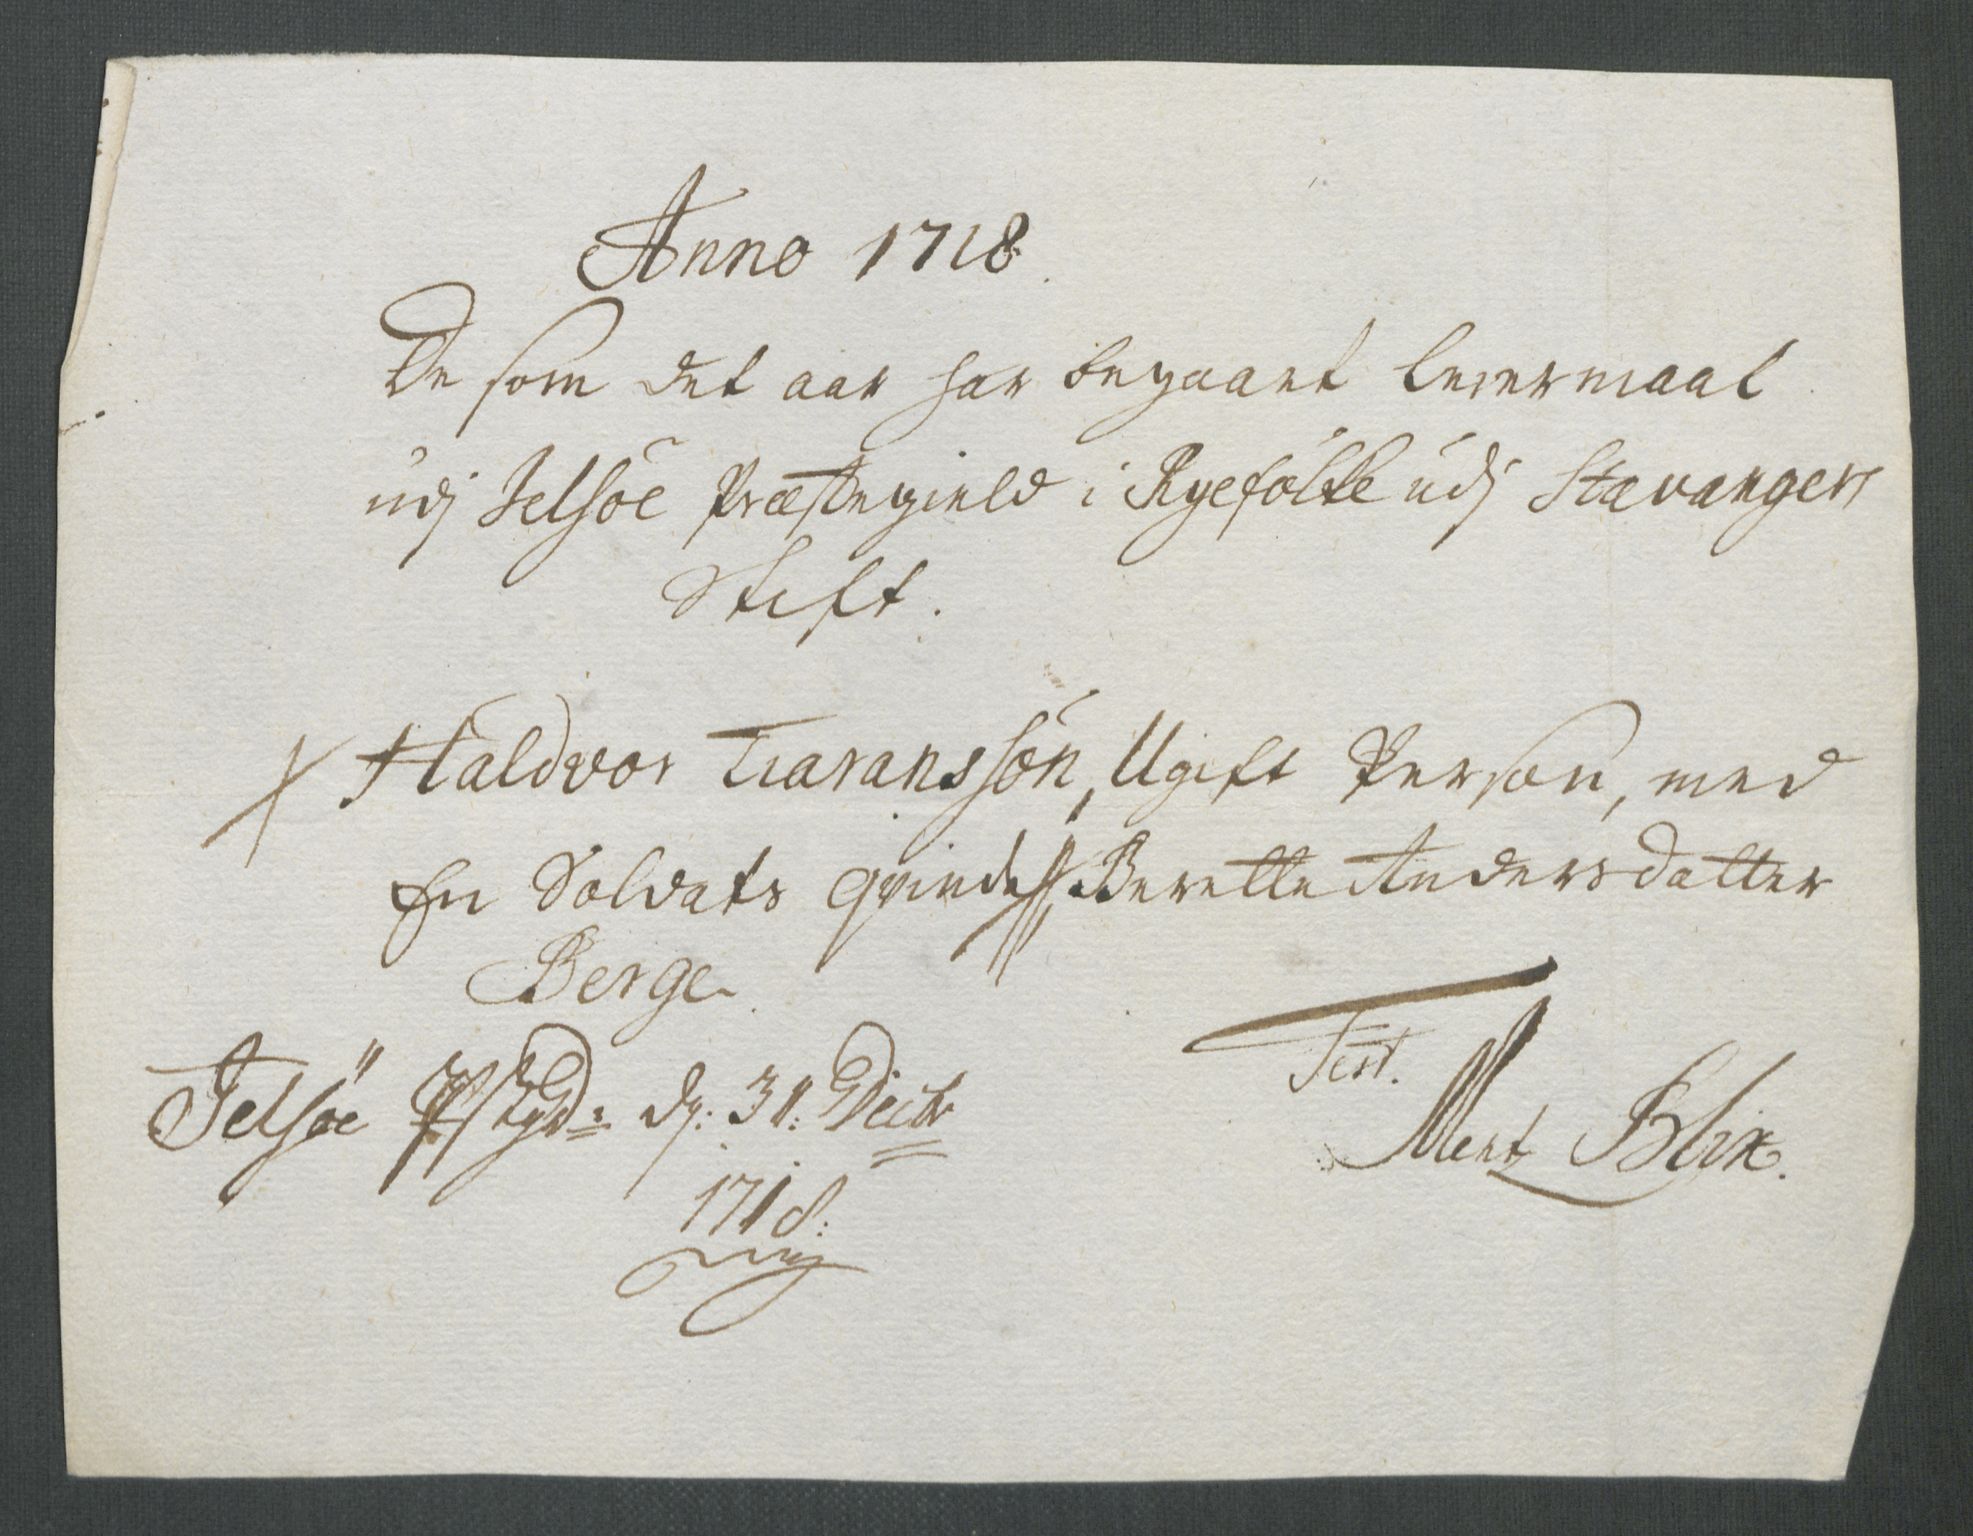 Anno 1718
De som det aar har begaaet leiermaal
udj Jelsöe Præstegield i Ryefölke udj Stavangers
Stift.
Haldvor Tiaranssön, Ugift Person, med
En Soldats qvinde, Berette Andersdatter
Berge
Jelsöe Pstgd: dj: 31: Decbr
1718:
Test.
Ment Blix.